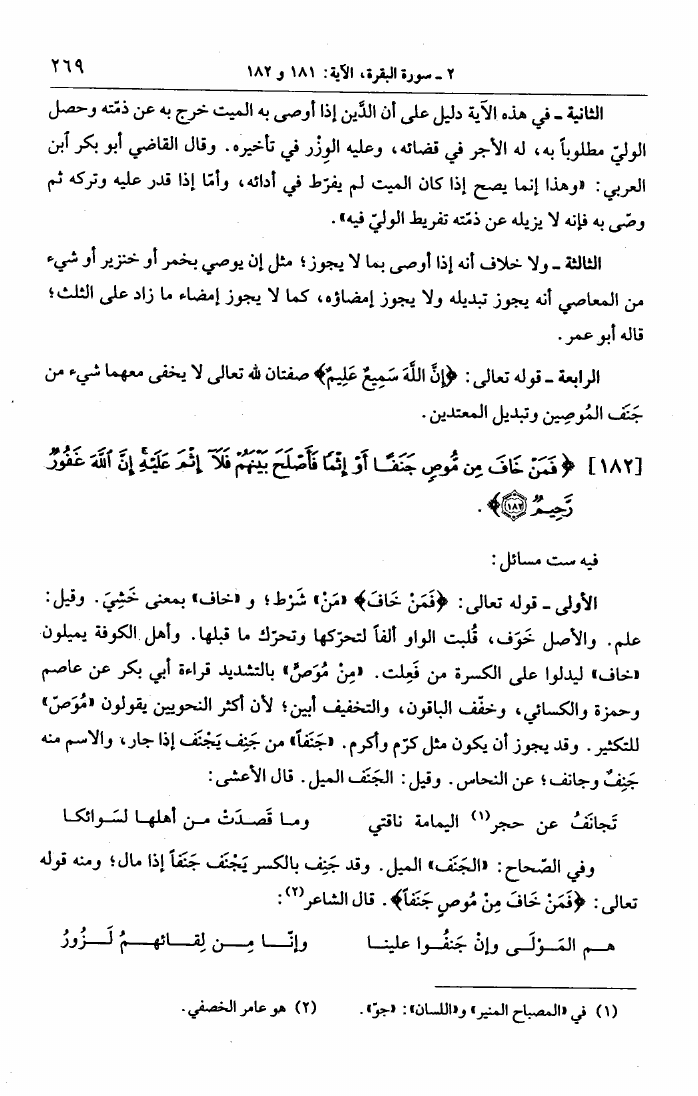 ٢ ـ سورة البقرة، الآية: ١٨١ و ١٨٢
٢٦٩
الثانية ـ في هذه الآية دليل على أن الدَّين إذا أوصى به الميت خرج به عن ذمّته وحصل
الوليّ مطلوباً به، له الأجر في قضائه، وعليه الوِزْر في تأخيره. وقال القاضي أبو بكر آبن
العربي: «وهذا إنما يصح إذا كان الميت لم يفرّط في أدائه، وأمّا إذا قدر عليه وتركه ثم
وصّى به فإنه لا يزيله عن ذمّته تفريط الوليّ فيه».
الثالثة ـ ولا خلاف أنه إذا أوصى بما لا يجوز؛ مثل إن يوصي بخمر أو خنزير أو شيء
من المعاصي أنه يجوز تبديله ولا يجوز إمضاؤه، كما لا يجوز إمضاء ما زاد على الثلث؛
قاله أبو عمر.
الرابعة ـ قوله تعالى: ﴿إنَّ اللَّهَ سَمِيعٌ عَلِيمٌ﴾ صفتان لله تعالى لا يخفى معهما شيء من
جَنَف المُوصِين وتبديل المعتدين.
[١٨٢] ﴿فَمَنْ خَافَ مِن مُّوصٍ جَنَفًا أَوْ إِثْمًا فَأَصْلَحَ بَيْنَهُمْ فَلَآ إِثْمَ عَلَيْهِ إِنَّ ٱللَّهَ غَفُورٌ
رَّحِيمٌ ١٨٢﴾.
فيه ست مسائل:
الأولى ـ قوله تعالى: ﴿فَمَنْ خَافَ﴾ «مَنْ» شَرْط؛ و «خاف» بمعنى خَشِيَ. وقيل:
علم. والأصل خَوَف، قُلبت الواو ألفاً لتحرّكها وتحرّك ما قبلها. وأهل الكوفة يميلون
«خاف» ليدلوا على الكسرة من فَعِلت. «مِنْ مُوَصٍّ» بالتشديد قراءة أبي بكر عن عاصم
وحمزة والكسائي، وخفّف الباقون، والتخفيف أبين؛ لأن أكثر النحويين يقولون «مُوَصّ»
للتكثير. وقد يجوز أن يكون مثل كرّم وأكرم. «جَنَفاً» من جَنِف يَجْنَف إذا جار، والاسم منه
جَنِفٌ وجانف؛ عن النحاس. وقيل: الجَنَف الميل. قال الأعشى:
تَجانَفُ عن حجر(١) اليمامة ناقتي وما قَصَدَتْ من أهلها لسَوائكا
وفي الصّحاح: «الجَنَف» الميل. وقد جَنِف بالكسر يَجْنَف جَنَفاً إذا مال؛ ومنه قوله
تعالى: ﴿فَمَنْ خَافَ مِنْ مُوصٍ جَنَفاً﴾. قال الشاعر(٢):
هم المَوْلَى وإنْ جَنَفُوا علينا وإنّا مِن لِقائهمُ لَزُورُ
(١) في «المصباح المنير» و«اللسان»: «جوّ». (٢) هو عامر الخصفي.